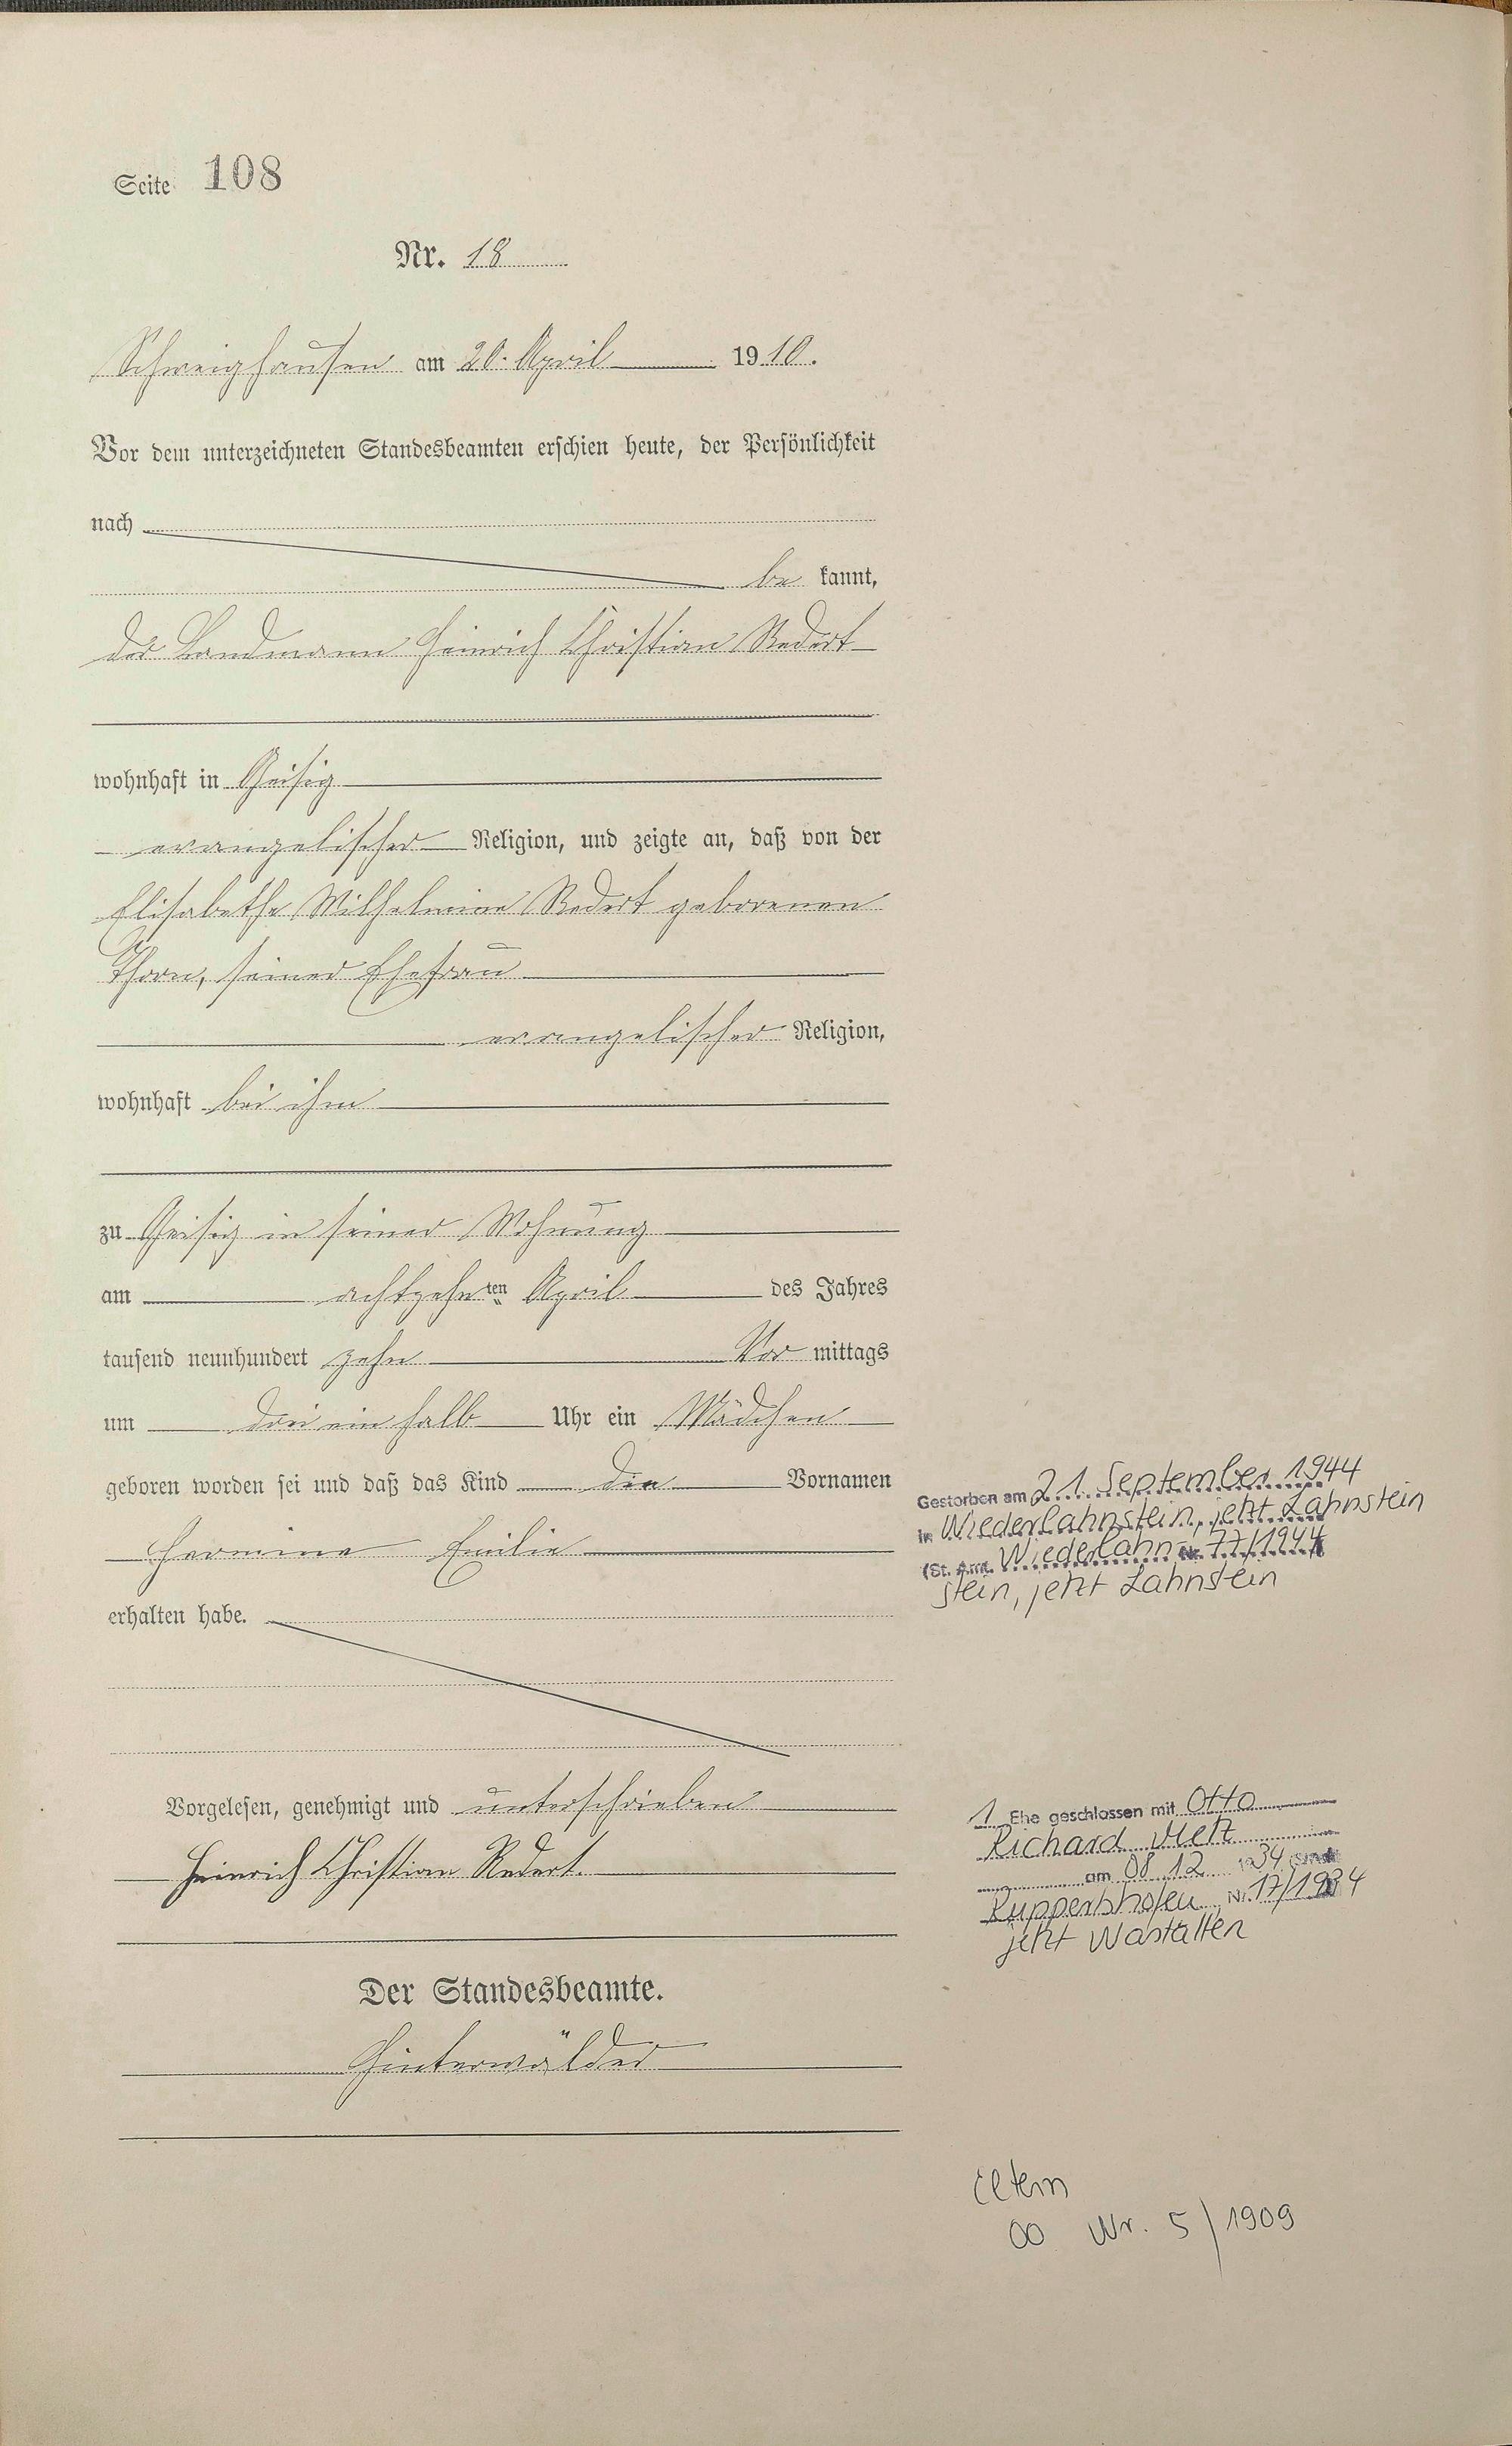 Seite 108
Nr. 18
Schweighausen am 20. April 1910.
Vor dem unterzeichneten Standesbeamten erschien heute, der Persönlichkeit
nach
be kannt,
der Landmann Heinrich Christian Redert
wohnhaft in Geisig
evangelischer Religion, und zeigte an, daß von der
Elisabethe Wilhelmine Redert geborenen
Thorn, seiner Ehefrau
evangelischer Religion,
wohnhaft bei ihm
zu Geisig in seiner Wohnung
am achtzehnten April des Jahres
tausend neunhundert zehn Vor mittags
um drei ein halb Uhr ein Mädchen
geboren worden sei und daß das Kind die Vornamen
Hermine Emilie
erhalten habe.
Vorgelesen, genehmigt und unterschrieben
Heinrich Christian Redert.
Der Standesbeamte.
Hinterwälder
Gestorben am 21. September 1944
in Niederlahnstein, jetzt Lahnstein
(St. Amt. Niederlahn- Nr. 77/1944
stein, jetzt Lahnstein
1. Ehe geschlossen mit Otto
Richard Metz
am 08.12.1934
Ruppertshofen Nr. 17/1934
jetzt Nastätten
Eltern
oo Nr. 5/1909